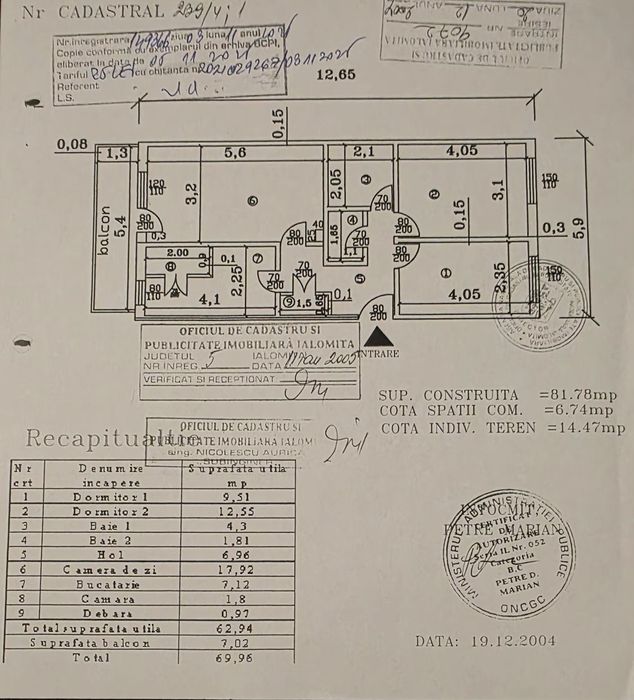 Nr CADASTRAL 239/4;1
Nr.inregistrare ziua 03 luna 11 anul 2021
Copie conforma cu exemplarul din arhiva BCPI,
eliberat la data de 05 11 2021
Tariful 25 LEI cu chitanta nr.
Referent
L.S.
OFICIUL DE CADASTRU SI
PUBLICITATE IMOBILIARA IALOMITA
INTRARE
IESIRE NR. 9072
ZIUA 20 LUNA 12 ANUL 2004
12,65
0,15
0,08
1,3
5,6
2,1
4,05
120
110
3,2
6
2,05
3
2
3,1
150
110
balcon
5,4
80
200
0,3
80
200
40
1,65
4
1,1
70
200
80
200
0,15
0,3
5,9
2.00
0,9
0,1
7
8
2,25
70
200
70
200
5
80
200
1
2,35
150
110
80
110
4,1
9
1,5
0,65
0,1
80
200
4,05
INTRARE
OFICIUL DE CADASTRU SI
PUBLICITATE IMOBILIARĂ IALOMITA
JUDETUL IALOMITA
NR INREG. 5 DATA 11 ian 2005
VERIFICAT SI RECEPTIONAT
SUP. CONSTRUITA =81.78mp
COTA SPATII COM. =6.74mp
COTA INDIV. TEREN =14.47mp
OFICIUL DE CADASTRU SI
PUBLICITATE IMOBILIARA IALOMI
ing. NICOLESCU AURICA
SUBINGINER
Recapitulatie
Nr crt Denumire incapere Suprafata utila mp
1 Dormitor 1 9,51
2 Dormitor 2 12,55
3 Baie 1 4,3
4 Baie 2 1,81
5 Hol 6,96
6 Camera de zi 17,92
7 Bucatarie 7,12
8 Camara 1,8
9 Debara 0,97
Total suprafata utila 62,94
Suprafata balcon 7,02
Total 69,96
INTOCMIT,
PETRE MARIAN
MINISTERUL ADMINISTRATIEI PUBLICE
CERTIFICAT
DE
AUTORIZARE
Seria IL Nr. 052
Categoria
B.C
PETRE D.
MARIAN
ONCGC
DATA: 19.12.2004